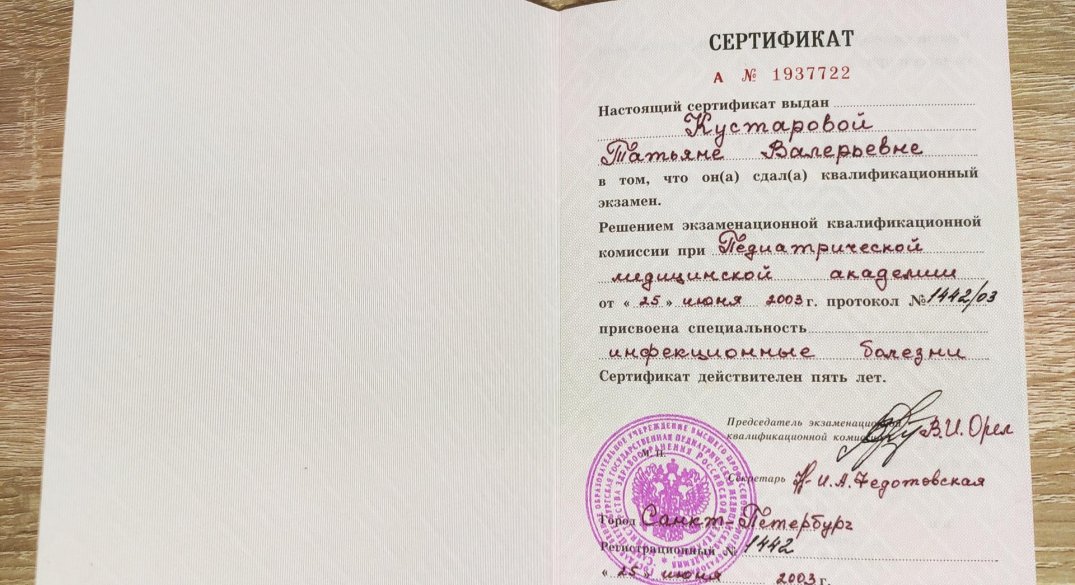 СЕРТИФИКАТ
А № 1937722
Настоящий сертификат выдан
Кустаровой
Татьяне Валерьевне
в том, что он(а) сдал(а) квалификационный
экзамен.
Решением экзаменационной квалификационной
комиссии при Педиатрической
медицинской академии
от « 25 » июня 2003 г. протокол № 1442/03
присвоена специальность
инфекционные болезни
Сертификат действителен пять лет.
Председатель экзаменационной
квалификационной комиссии В.И. Орел
М. П.
Секретарь И.А. Федотовская
Город Санкт-Петербург
Регистрационный № 1442
« 25 » июня 2003 г.